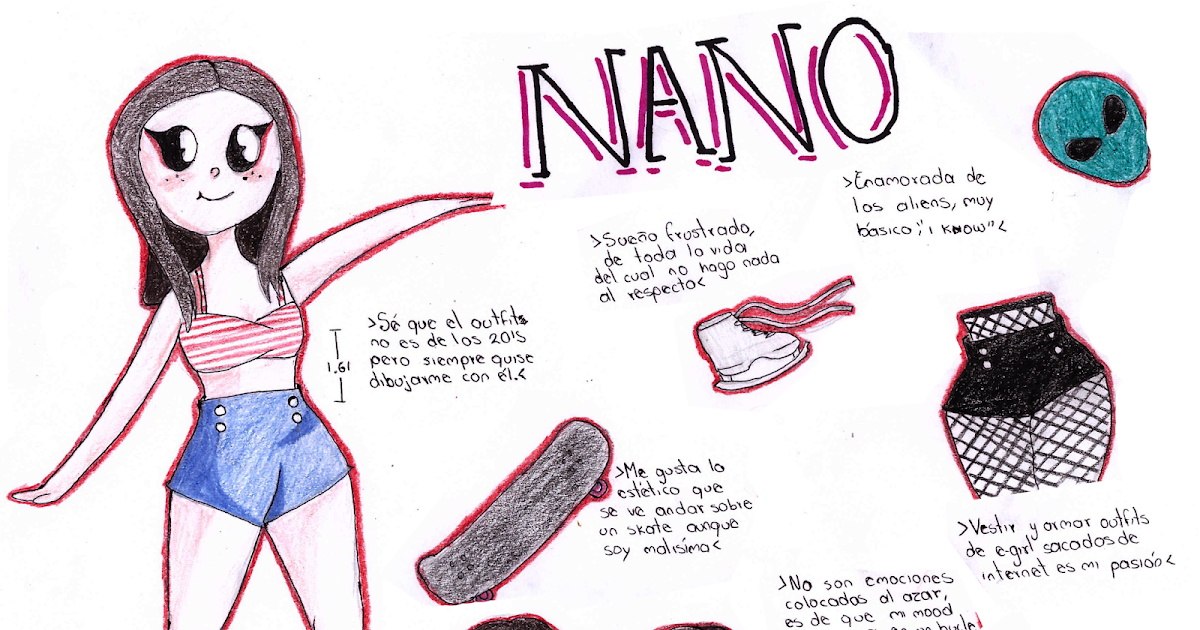 NANO
>Enamorada de
los aliens, muy
básico ;"i know"<
>Sueño frustrado,
de toda la vida
del cual no hago nada
al respecto<
>Sé que el outfit
no es de los 20's
pero siempre quise
dibujarme con él.<
1.61
>Me gusta lo
estético que
se ve andar sobre
un skate aunque
soy malísima<
>Vestir y armar outfits
de e-girl sacados de
internet es mi pasión<
>No son emociones
colocadas al azar,
es de que mi mood